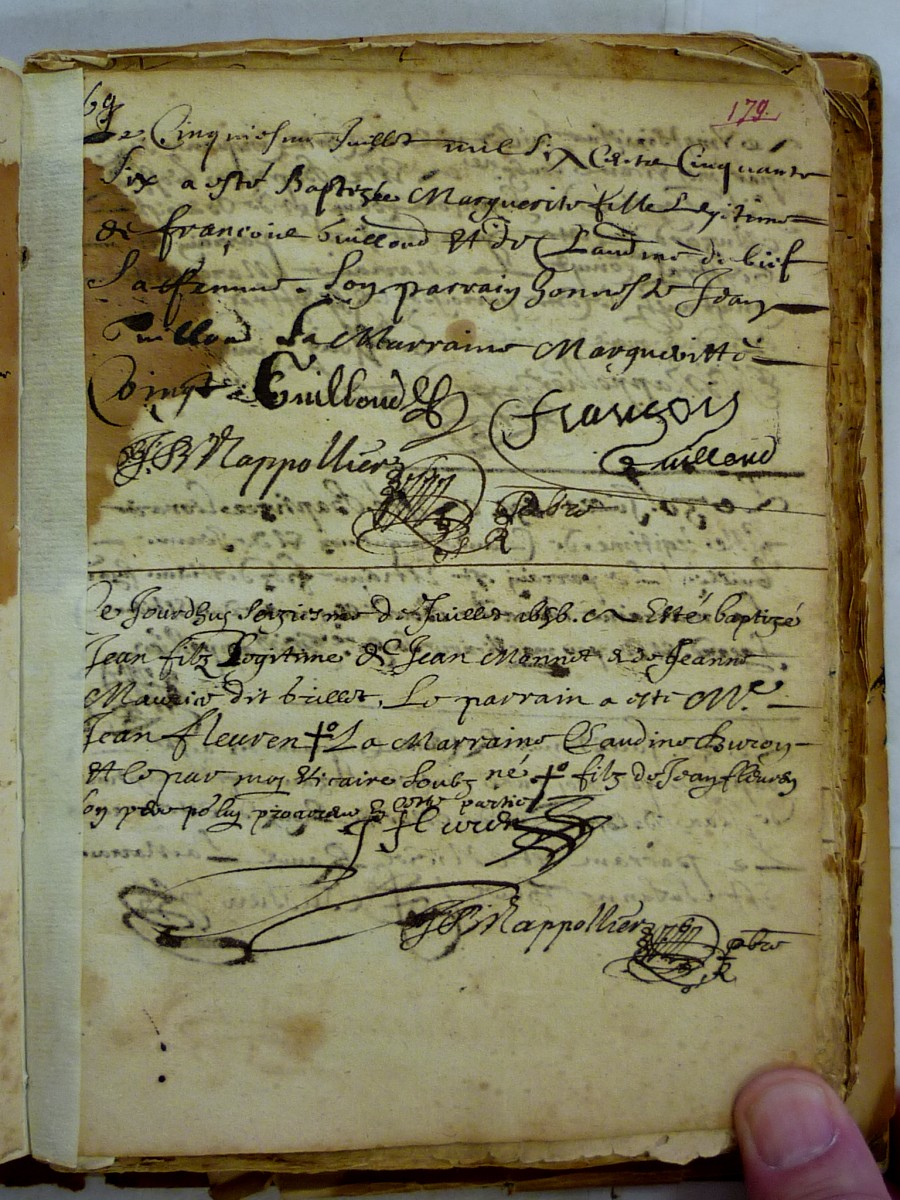 69
179.
Le Cinquiesme Juillet mil Six Cents Cinquante
Six a esté Baptizée Marguerite fille Legitime
de françois Guilloud Et de Claudine du bief
Sa femme. Son parrain honneste Jean
Guilloud La Marraine Margueritte
Guilloud
françois
Guilloud
J B Nappollier
pbre
Ce Jourdhuy Seiziesme de Juillet 1656. a Esté baptizé
Jean filz Legitime de Jean Monnet & de Jeanne
Maurice dit billet, Le parrain a esté Mre
Jean fleuren La Marraine Claudine
Et ce par moy Vicaire Soubz né filz de Jean fleuren
son pere
J B Nappollier
pbre